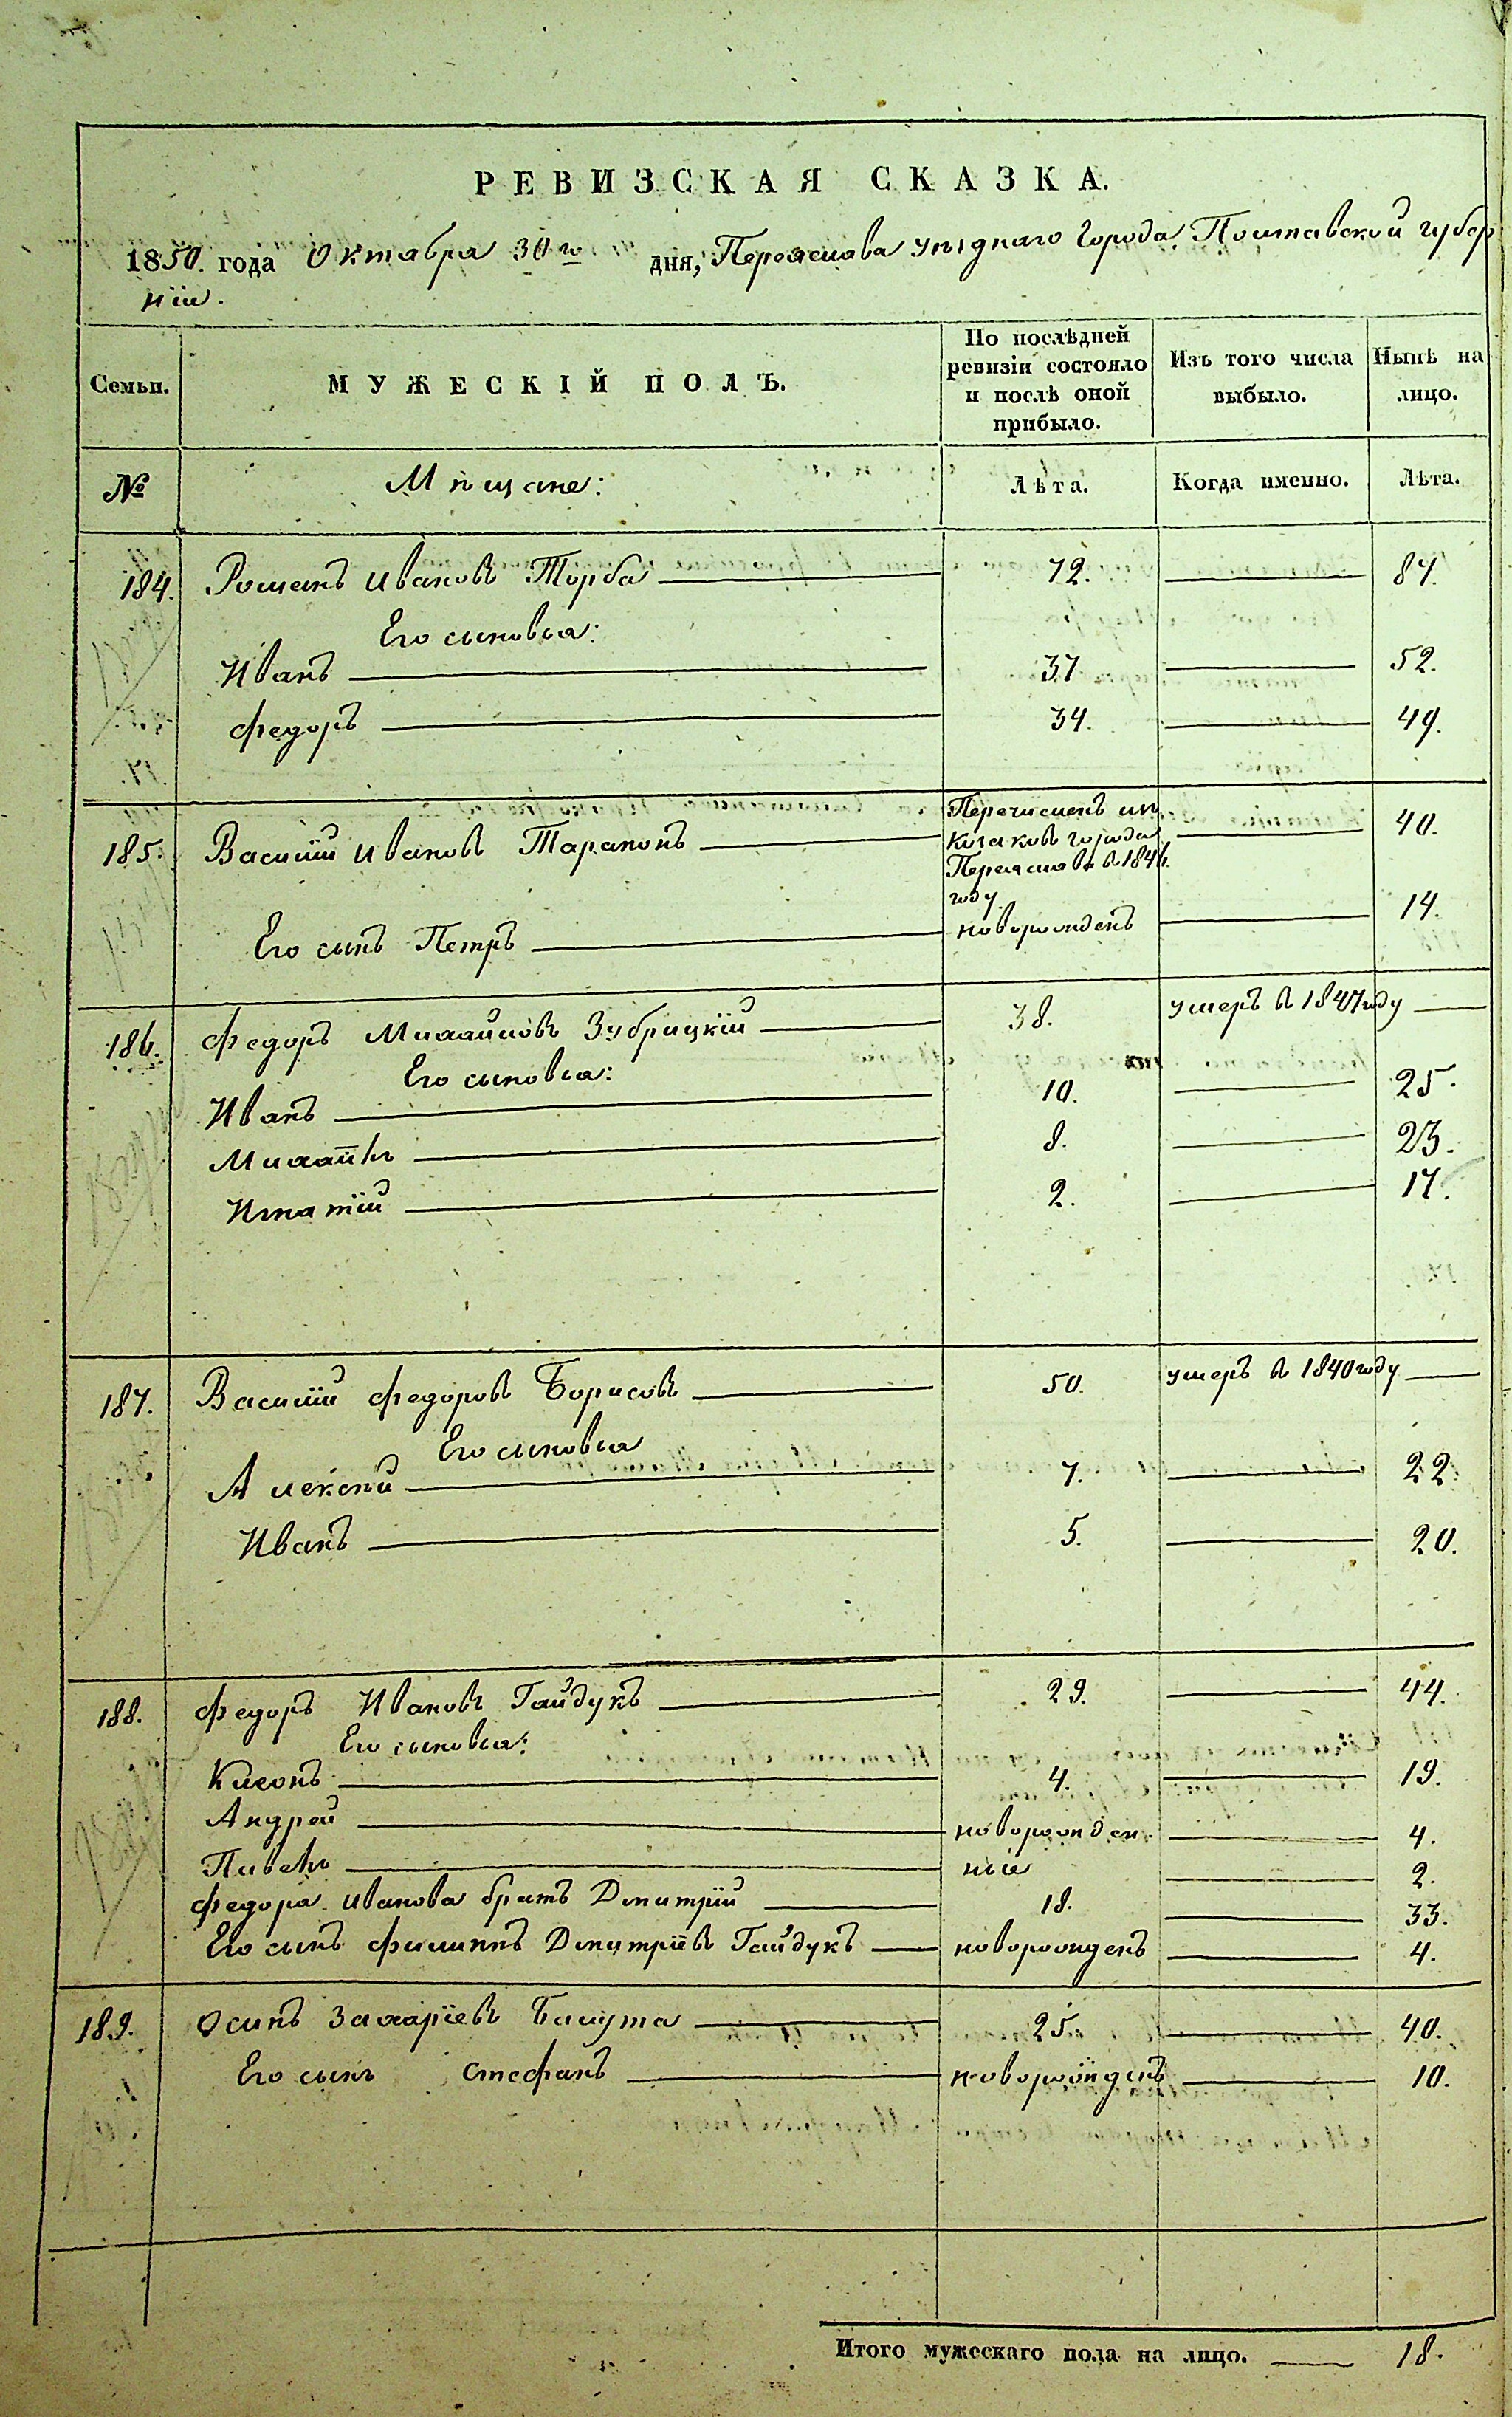 РЕВИЗСКАЯ СКАЗКА.
1850. года Октября 30го дня, Переяслава Уѣзднаго Города Полтавской Губер
нiи.
Семьи. МУЖЕСКІЙ ПОЛЪ. По послѣдней ревизіи состояло и послѣ оной прибыло. Изъ того числа выбыло. Нынѣ на лицо.
№ Мѣщане: Лѣта. Когда именно. Лѣта.
184. Романъ Ивановъ Торба 72. 87.
Его сыновья:
Иванъ 37 52.
Федоръ 34. 49.
185. Василій Ивановъ Тарапонъ Перечисленъ изъ Козаковъ города Переяслава в 1846. году 40.
Его сынъ Петръ новорожденъ 14.
186. Федоръ Михайловъ Зубрицкій 38. умеръ в 1847 году
Его сыновья:
Иванъ 10. 25.
Михайлъ 8. 23.
Игнатій 2. 17.
187. Василій Федоровъ Борисовъ 50. умеръ в 1840 году
Его сыновья
Алексѣй 7. 22
Иванъ 5. 20.
188. Федоръ Ивановъ Гайдукъ 29. 44.
Его сыновья:
Клеонъ 4. 19.
Андрей новорожден 4.
Павелъ ные 2.
Федора Иванова братъ Дмитрій 18. 33.
Его сынъ Филиппъ Дмитріевъ Гайдукъ новорожденъ 4.
189. Осипъ Захаріевъ Балута 25. 40.
Его сынъ Стефанъ новорожденъ 10.
Итого мужескаго пола на лицо. 18.